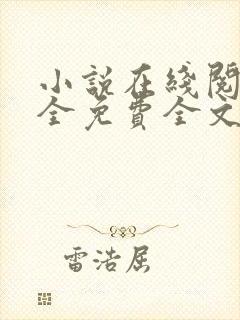 小說在綫閱
全免費全文
雷浩屈